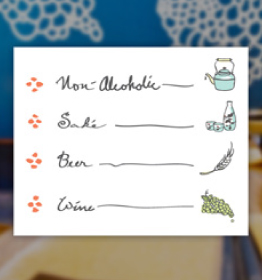 Non-Alcoholic
Saké
Beer
Wine